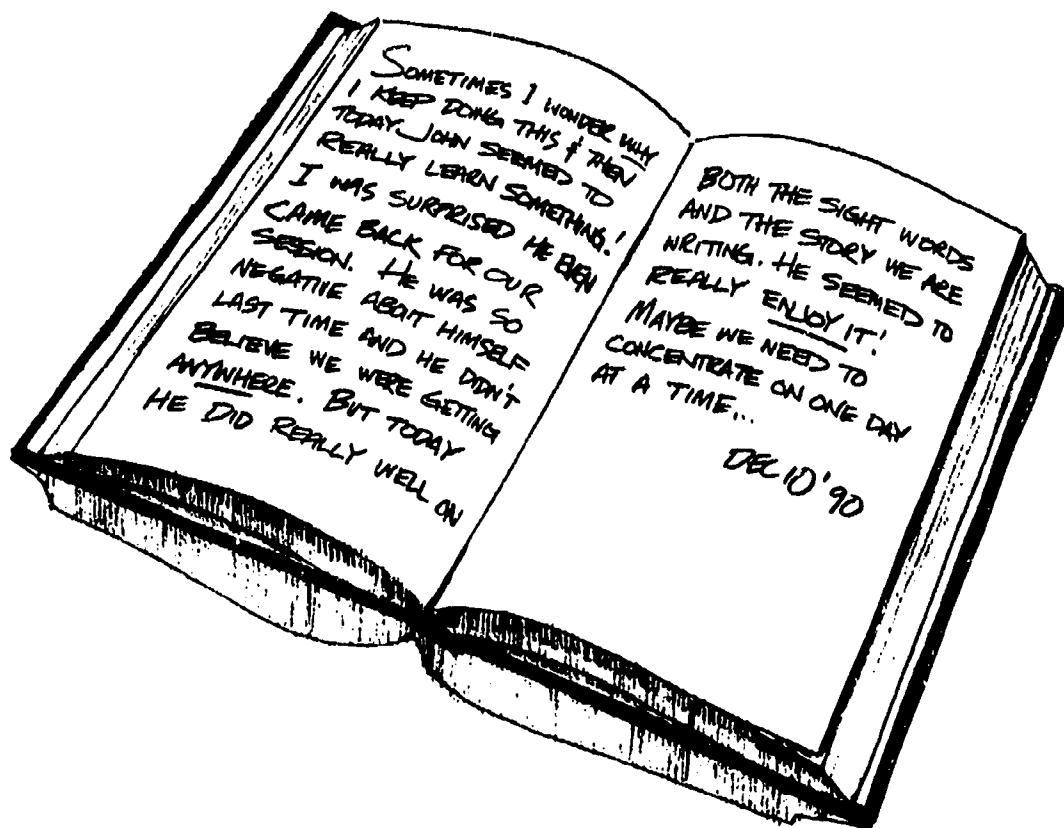 SOMETIMES I WONDER WHY
I KEEP DOING THIS & THEN
TODAY JOHN SEEMED TO
REALLY LEARN SOMETHING!
I WAS SURPRISED HE EVEN
CAME BACK FOR OUR
SESSION. HE WAS SO
NEGATIVE ABOUT HIMSELF
LAST TIME AND HE DIDN'T
BELIEVE WE WERE GETTING
ANYWHERE. BUT TODAY
HE DID REALLY WELL ON
BOTH THE SIGHT WORDS
AND THE STORY WE ARE
WRITING. HE SEEMED TO
REALLY ENJOY IT!
MAYBE WE NEED TO
CONCENTRATE ON ONE DAY
AT A TIME...
DEC 10 '90